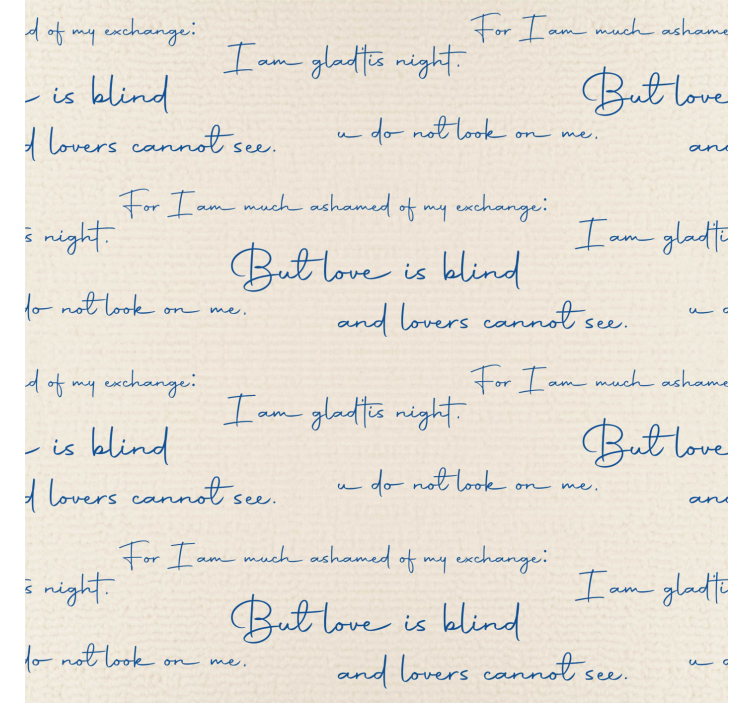 d of my exchange:
For I am much ashame
I am glad 'tis night.
is blind
But love
u do not look on me.
d lovers cannot see.
and
For I am much ashamed of my exchange:
s night.
I am glad 'ti
But love is blind
do not look on me.
u d
and lovers cannot see.
d of my exchange:
For I am much ashame
I am glad 'tis night.
is blind
But love
u do not look on me.
d lovers cannot see.
and
For I am much ashamed of my exchange:
s night.
I am glad 'ti
But love is blind
do not look on me.
u d
and lovers cannot see.